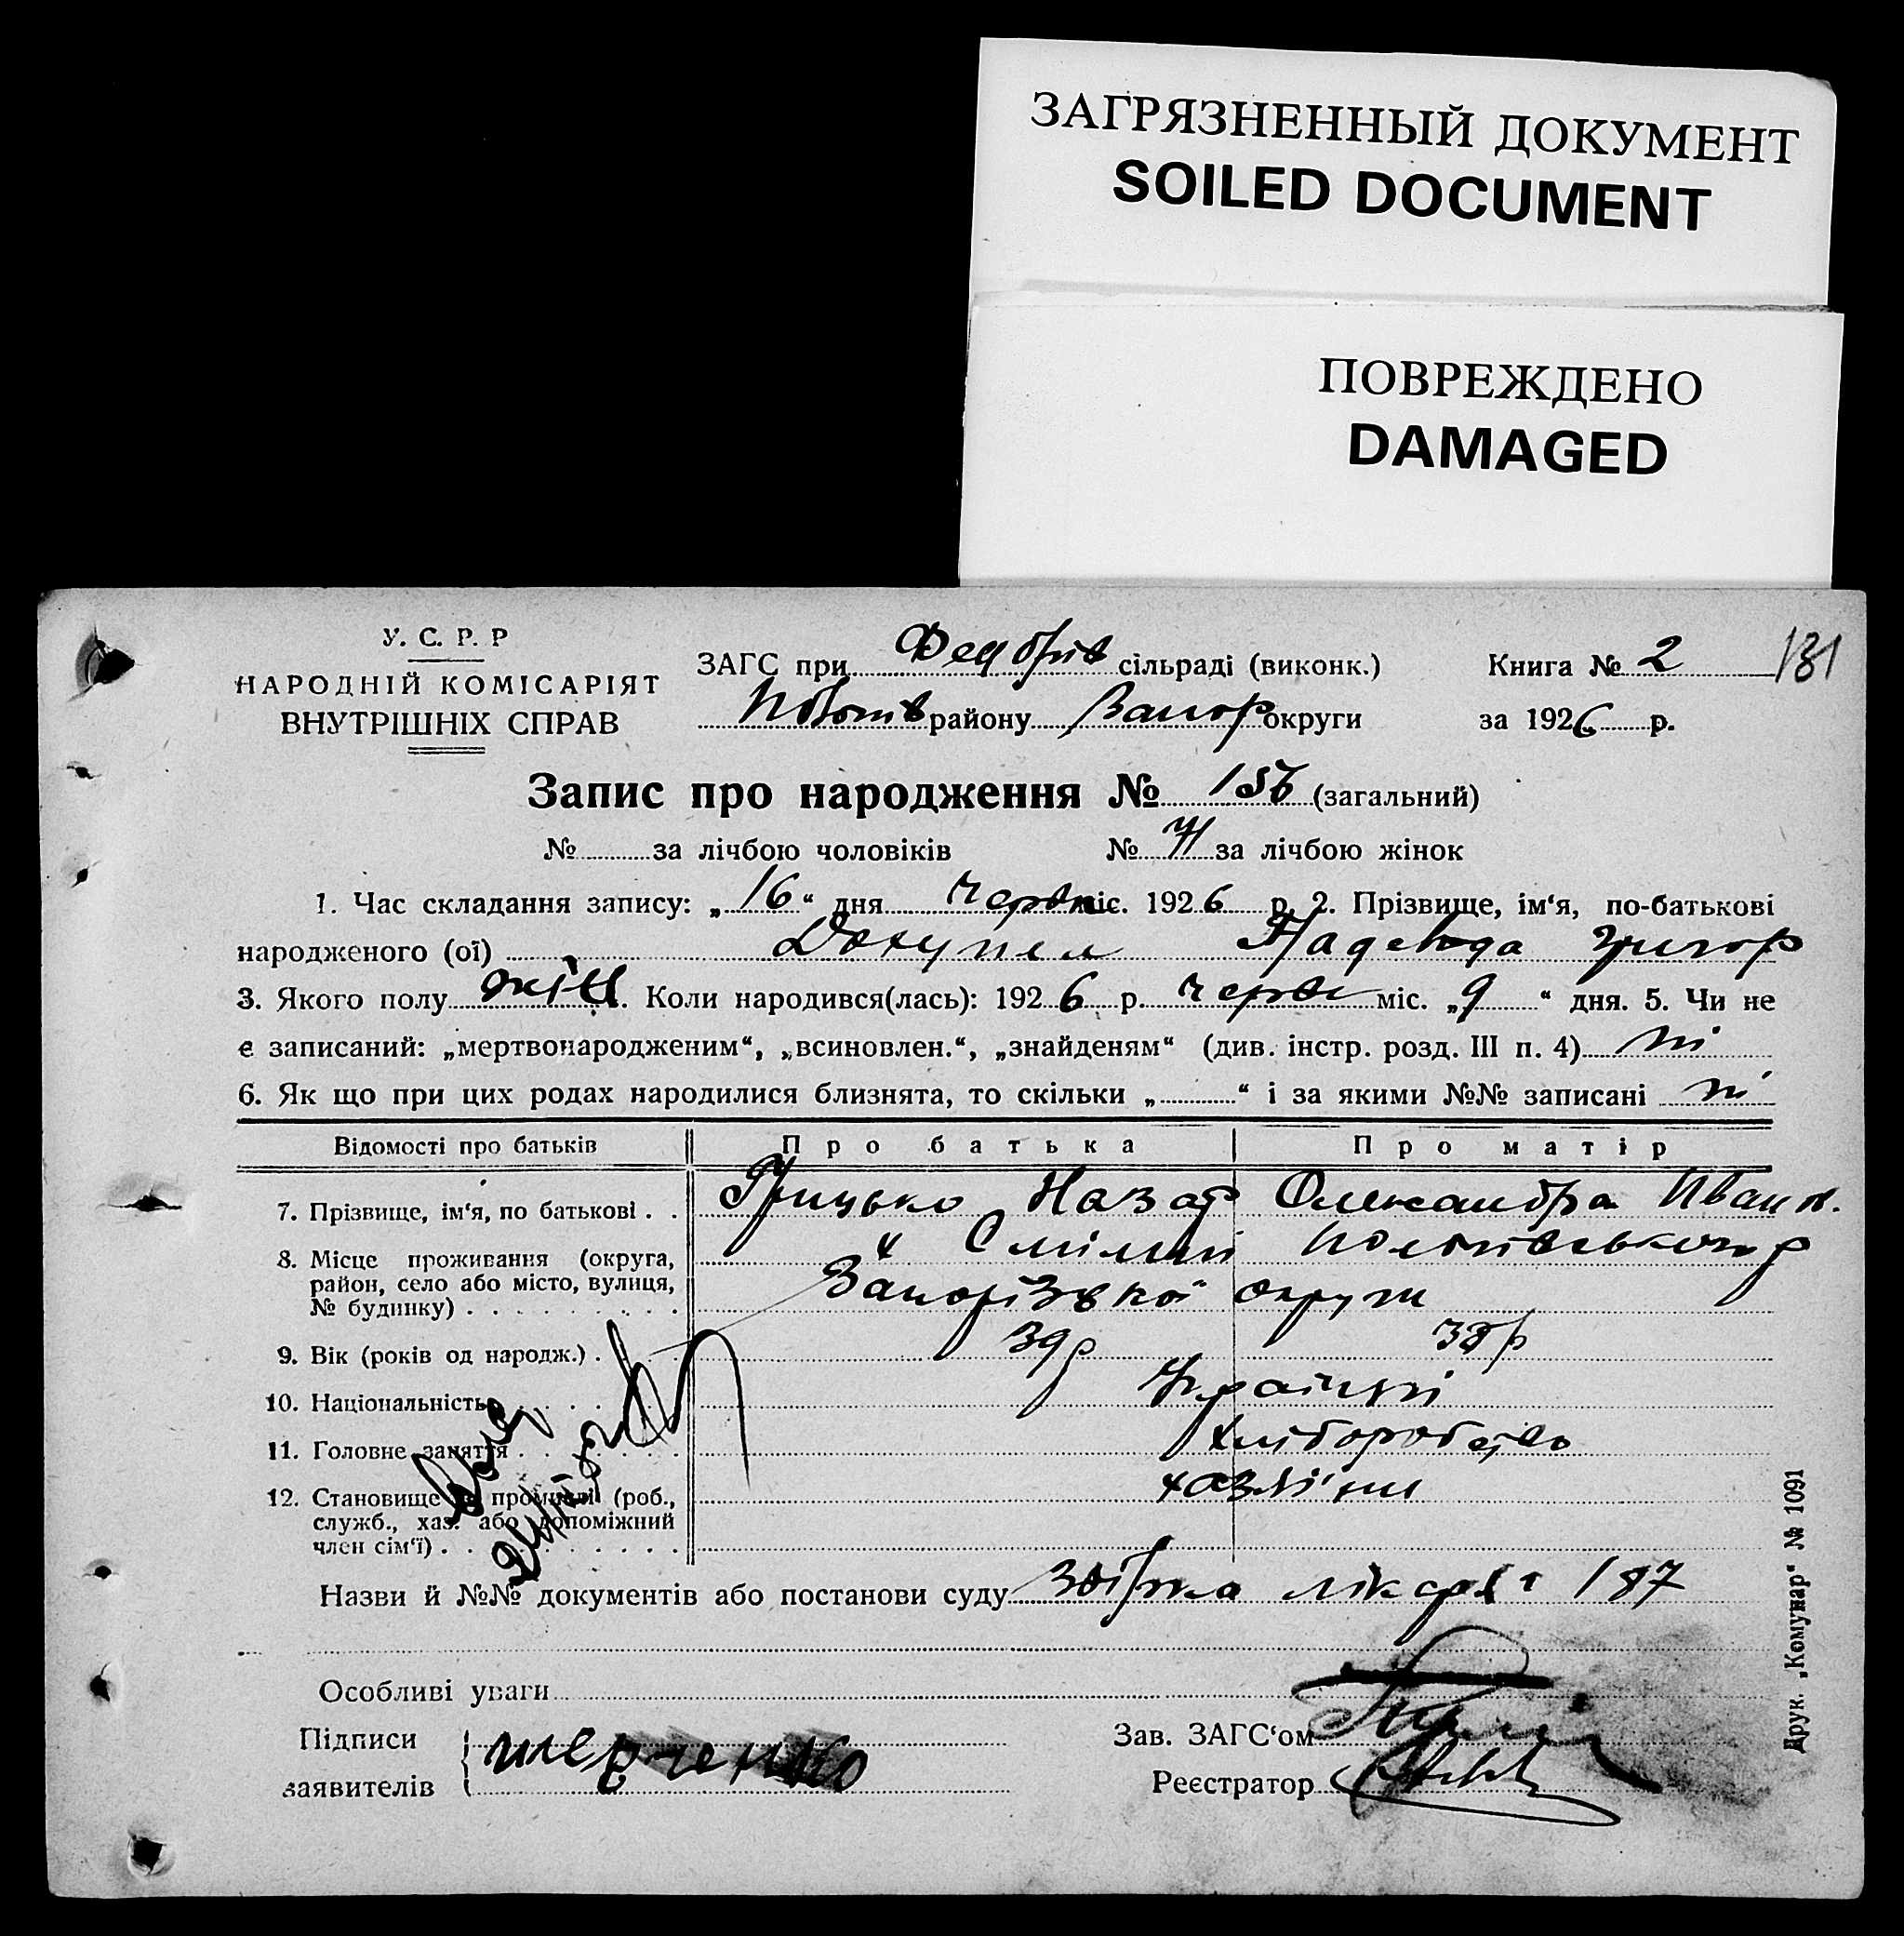 ЗАГРЯЗНЕННЫЙ ДОКУМЕНТ
SOILED DOCUMENT
ПОВРЕЖДЕНО
DAMAGED
У. С. Р. Р
НАРОДНІЙ КОМІСАРІЯТ
ВНУТРІШНІХ СПРАВ
ЗАГС при сільраді (виконк.)
району Запор округи
Книга № 2 131
за 1926 р.
Запис про народження № 156 (загальний)
№ за лічбою чоловіків № 71 за лічбою жінок
1. Час складання запису: „16“ дня червн міс. 1926 р. 2. Прізвище, ім‘я, по-батькові
народженого (ої) Надежда Григор
3. Якого полу жін. Коли народився(лась): 1926 р. червн міс. „9“ дня. 5. Чи не
є записаний: „мертвонародженим“, „всиновлен.“, „знайденям“ (див. інстр. розд. III п. 4) ні
6. Як що при цих родах народилися близнята, то скільки „ “ і за якими №№ записані ні
Відомості про батьків Про батька Про матір
7. Прізвище, ім‘я, по батькові . . Грицько Назар Олександра Иван
8. Місце проживання (округа,
район, село або місто, вулиця,
№ будинку) . . . . . . . . . Запорізької округи
9. Вік (років од народж.) . 39 р 38 р
10. Національність Українці
11. Головне заняття . . . . хліборобство
12. Становище в промислі (роб.,
служб., хаз. або допоміжний
член сім‘ї) . . . . . . . . . . хазяїни
Назви й №№ документів або постанови суду лікаря 187
Особливі уваги
Підписи
заявителів
шевченко
Зав. ЗАГС‘ом
Реєстратор
Друк. „Комунар“ № 1091